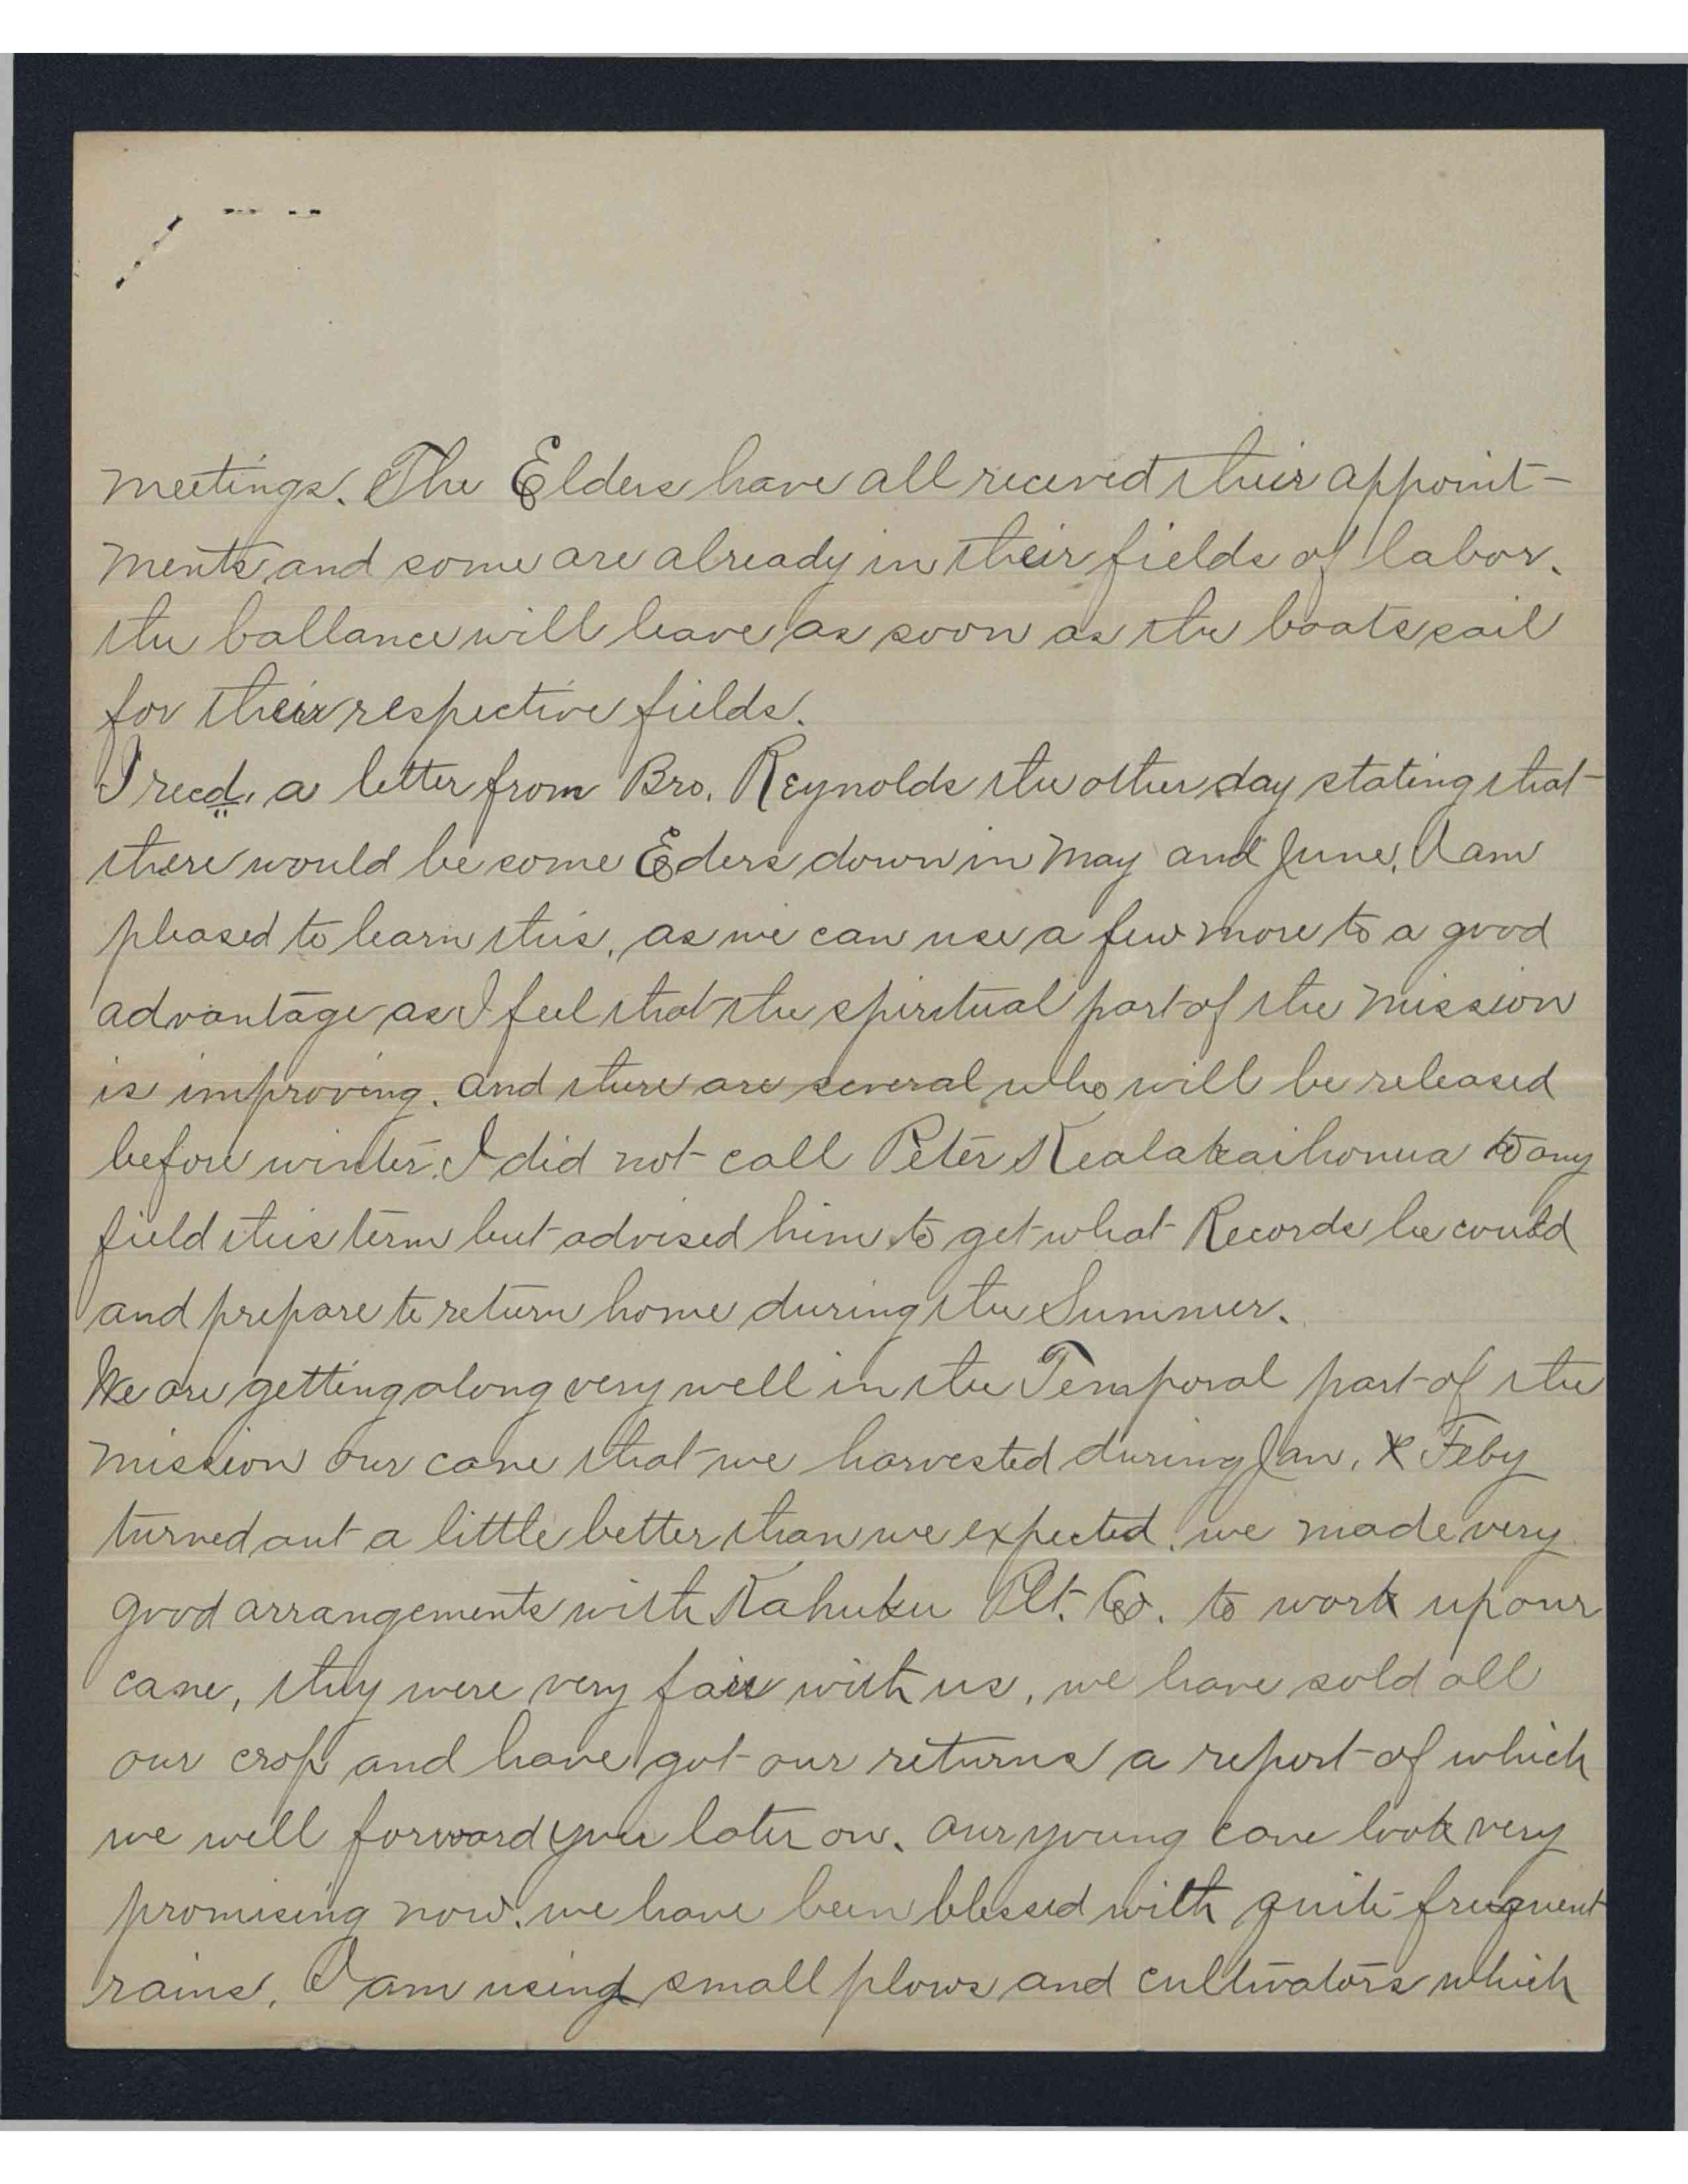 meetings. The Elders have all recieved their appoint-
ments and some are already in their fields of labor.
the ballance will leave as soon as the boats sail
for their respective fields.
I recd. a letter from Bro. Reynolds the other day stating that
there would be some Eders down in May and June. I am
pleased to learn this, as we can use a few more to a good
advantage as I feel that the spiritual part of the mission
is improving. and there are several who will be released
before winter. I did not call Peter Kealakaihonua to any
field this term but advised him to get what Records he could
and prepare to return home during the Summer.
We are getting along very well in the Temporal part of the
mission our cane that we harvested during Jan. & Feby
turned out a little better than we expected. we made very
good arrangements with Kahuku Plt. Co. to work up our
cane, they were very fair with us, we have sold all
our crop and have got our returns a report of which
we will forward you later on. our young cane look very
promising now. we have been blessed with quite frequent
rains. I am using small plows and cultivators which